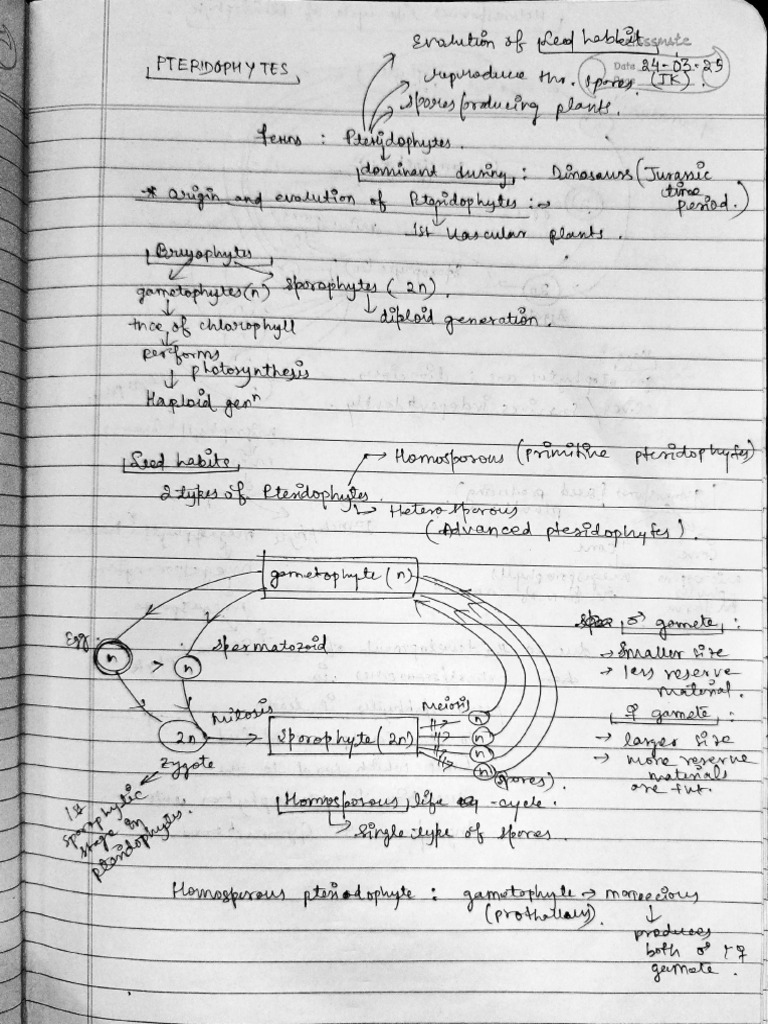 Evalution of Seed habbit
classmate
PTERIDOPHYTES
Date 24-03-25
reproduce thr. spores. (IK)
spores producing plants.
Ferns : Pteridophytes.
dominant during : Dinosaurs (Jurassic time period.)
* origin and evolution of Pteridophytes :-
1st vascular plants.
Bryophytes
gametophytes (n) sporophytes (2n).
diploid generation.
+nce of chlorophyll
performs
photosynthesis
Haploid genⁿ
Seed habits
Homosporous (primitive pteridophytes)
2 types of Pteridophytes.
Heterosporous
(Advanced pteridophytes).
gametophyte (n)
Egg.
n > n
spermatozoid
♂ gamete :
→ smaller size
→ less reserve material.
♀ gamete :
→ larger size
→ more reserve materials are
Mitosis
Meiosis
2n → sporophyte (2n)
n
n
n
n (spores).
zygote
1st sporophytic stage in pteridophytes.
Homosporous life cycle.
single type of spores.
Homosporous pteriodophyte : gametophyte → monoecious
(prothallus).
produces
both ♂ & ♀
gamete.